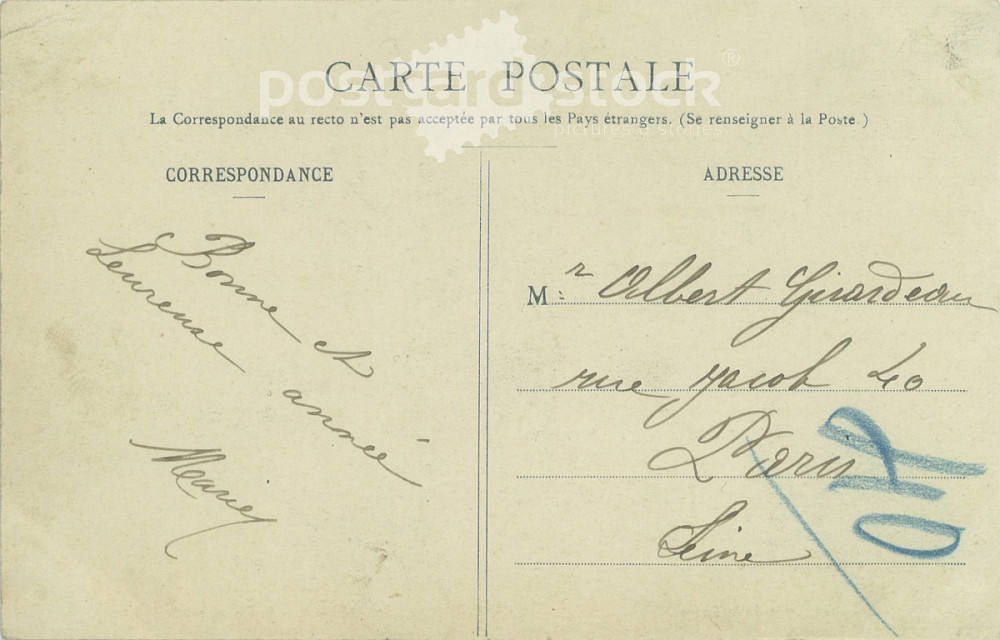 CARTE POSTALE
postcard stock ®
pictures & stories
La Correspondance au recto n'est pas acceptée par tous les Pays étrangers. (Se renseigner à la Poste.)
CORRESPONDANCE
Bonne et
heureuse année
Marie
ADRESSE
M.r Albert Girardeau
rue Jacob 40
Paris
Seine